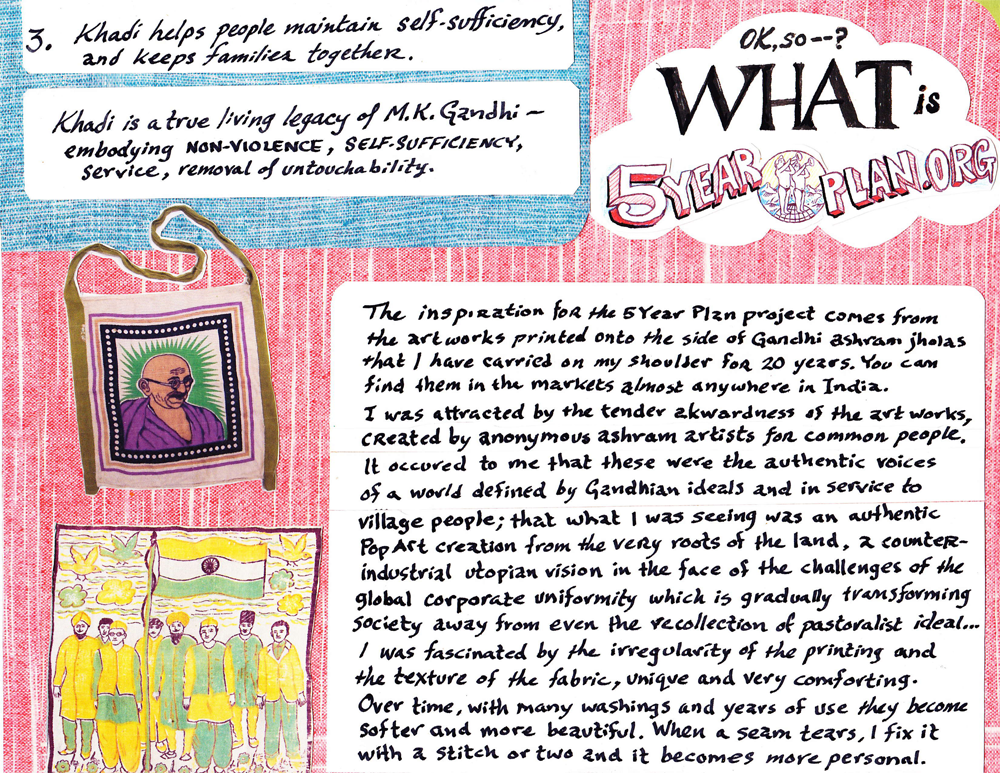 3. Khadi helps people maintain self-sufficiency,
and keeps families together.
Khadi is a true living legacy of M.K. Gandhi –
embodying NON-VIOLENCE, SELF-SUFFICIENCY,
service, removal of untouchability.
OK, so--?
WHAT is
5 YEAR PLAN.ORG
The inspiration for the 5 Year Plan project comes from
the artworks printed onto the side of Gandhi ashram jholas
that I have carried on my shoulder for 20 years. You can
find them in the markets almost anywhere in India.
I was attracted by the tender akwardness of the art works,
created by anonymous ashram artists for common people.
It occured to me that these were the authentic voices
of a world defined by Gandhian ideals and in service to
village people; that what I was seeing was an authentic
Pop Art creation from the very roots of the land, a counter-
industrial utopian vision in the face of the challenges of the
global corporate uniformity which is gradually transforming
society away from even the recollection of pastoralist ideal...
I was fascinated by the irregularity of the printing and
the texture of the fabric, unique and very comforting.
Over time, with many washings and years of use they become
softer and more beautiful. When a seam tears, I fix it
with a stitch or two and it becomes more personal.